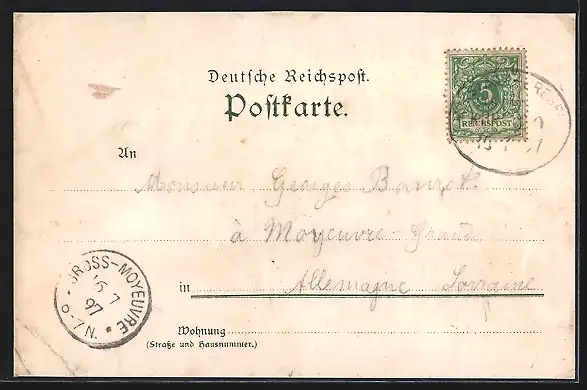 Deutsche Reichspost.
Postkarte.
5
REICHSPOST
An Monsieur Georges
à Moyeuvre-Grande
in Allemagne Lorraine
GROSS-MOYEUVRE
15 7
97
6-7 N.
Wohnung
(Straße und Hausnummer.)